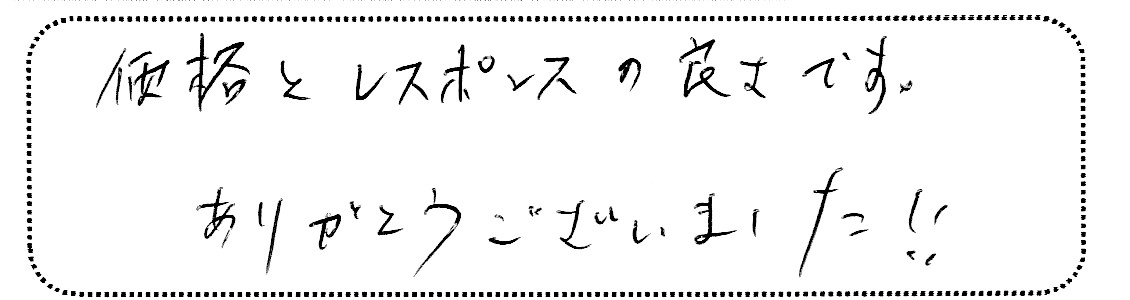 価格とレスポンスの良さです。
ありがとうございました!!